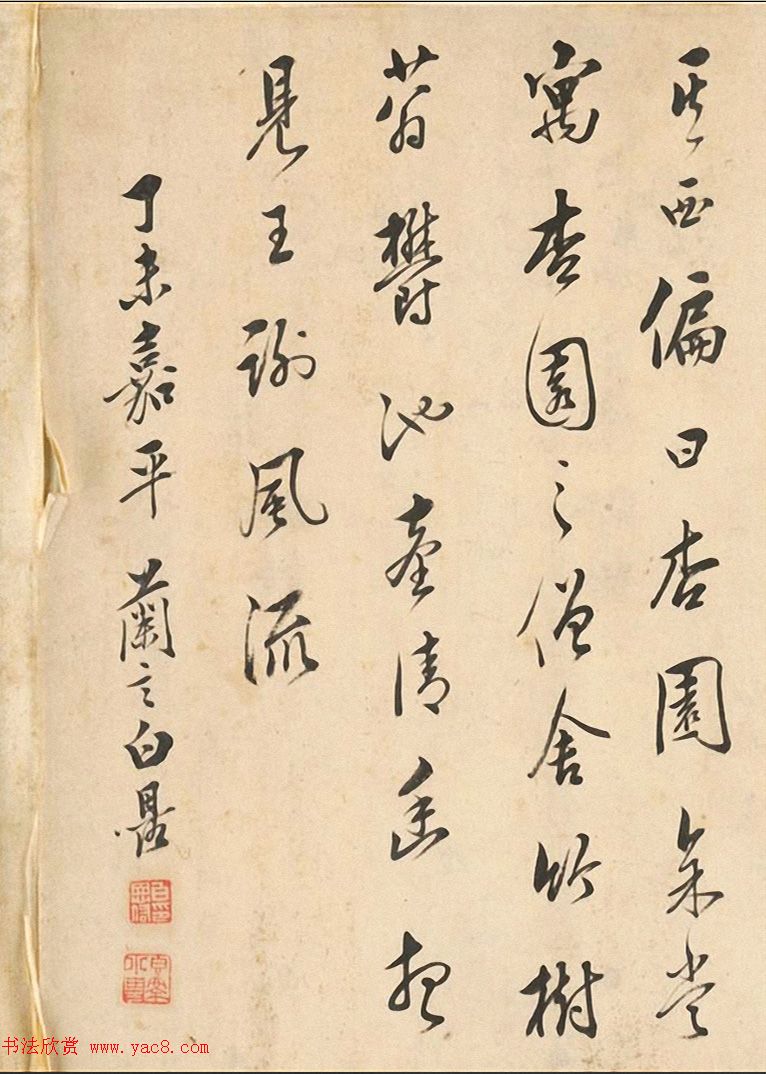 其西偏曰杏園余嘗
寓杏園之僧舍竹樹
蓊欝池臺清幽想
見王謝風流
丁未嘉平蘭之白鼎
书法欣赏 www.yac8.com